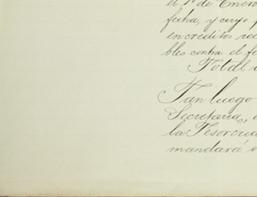 el 1º de Enero
fecha, y cuyo
en creditos rec
bles contra el
Total
Tan luego
Secretaria,
la Tesoreria
mandará